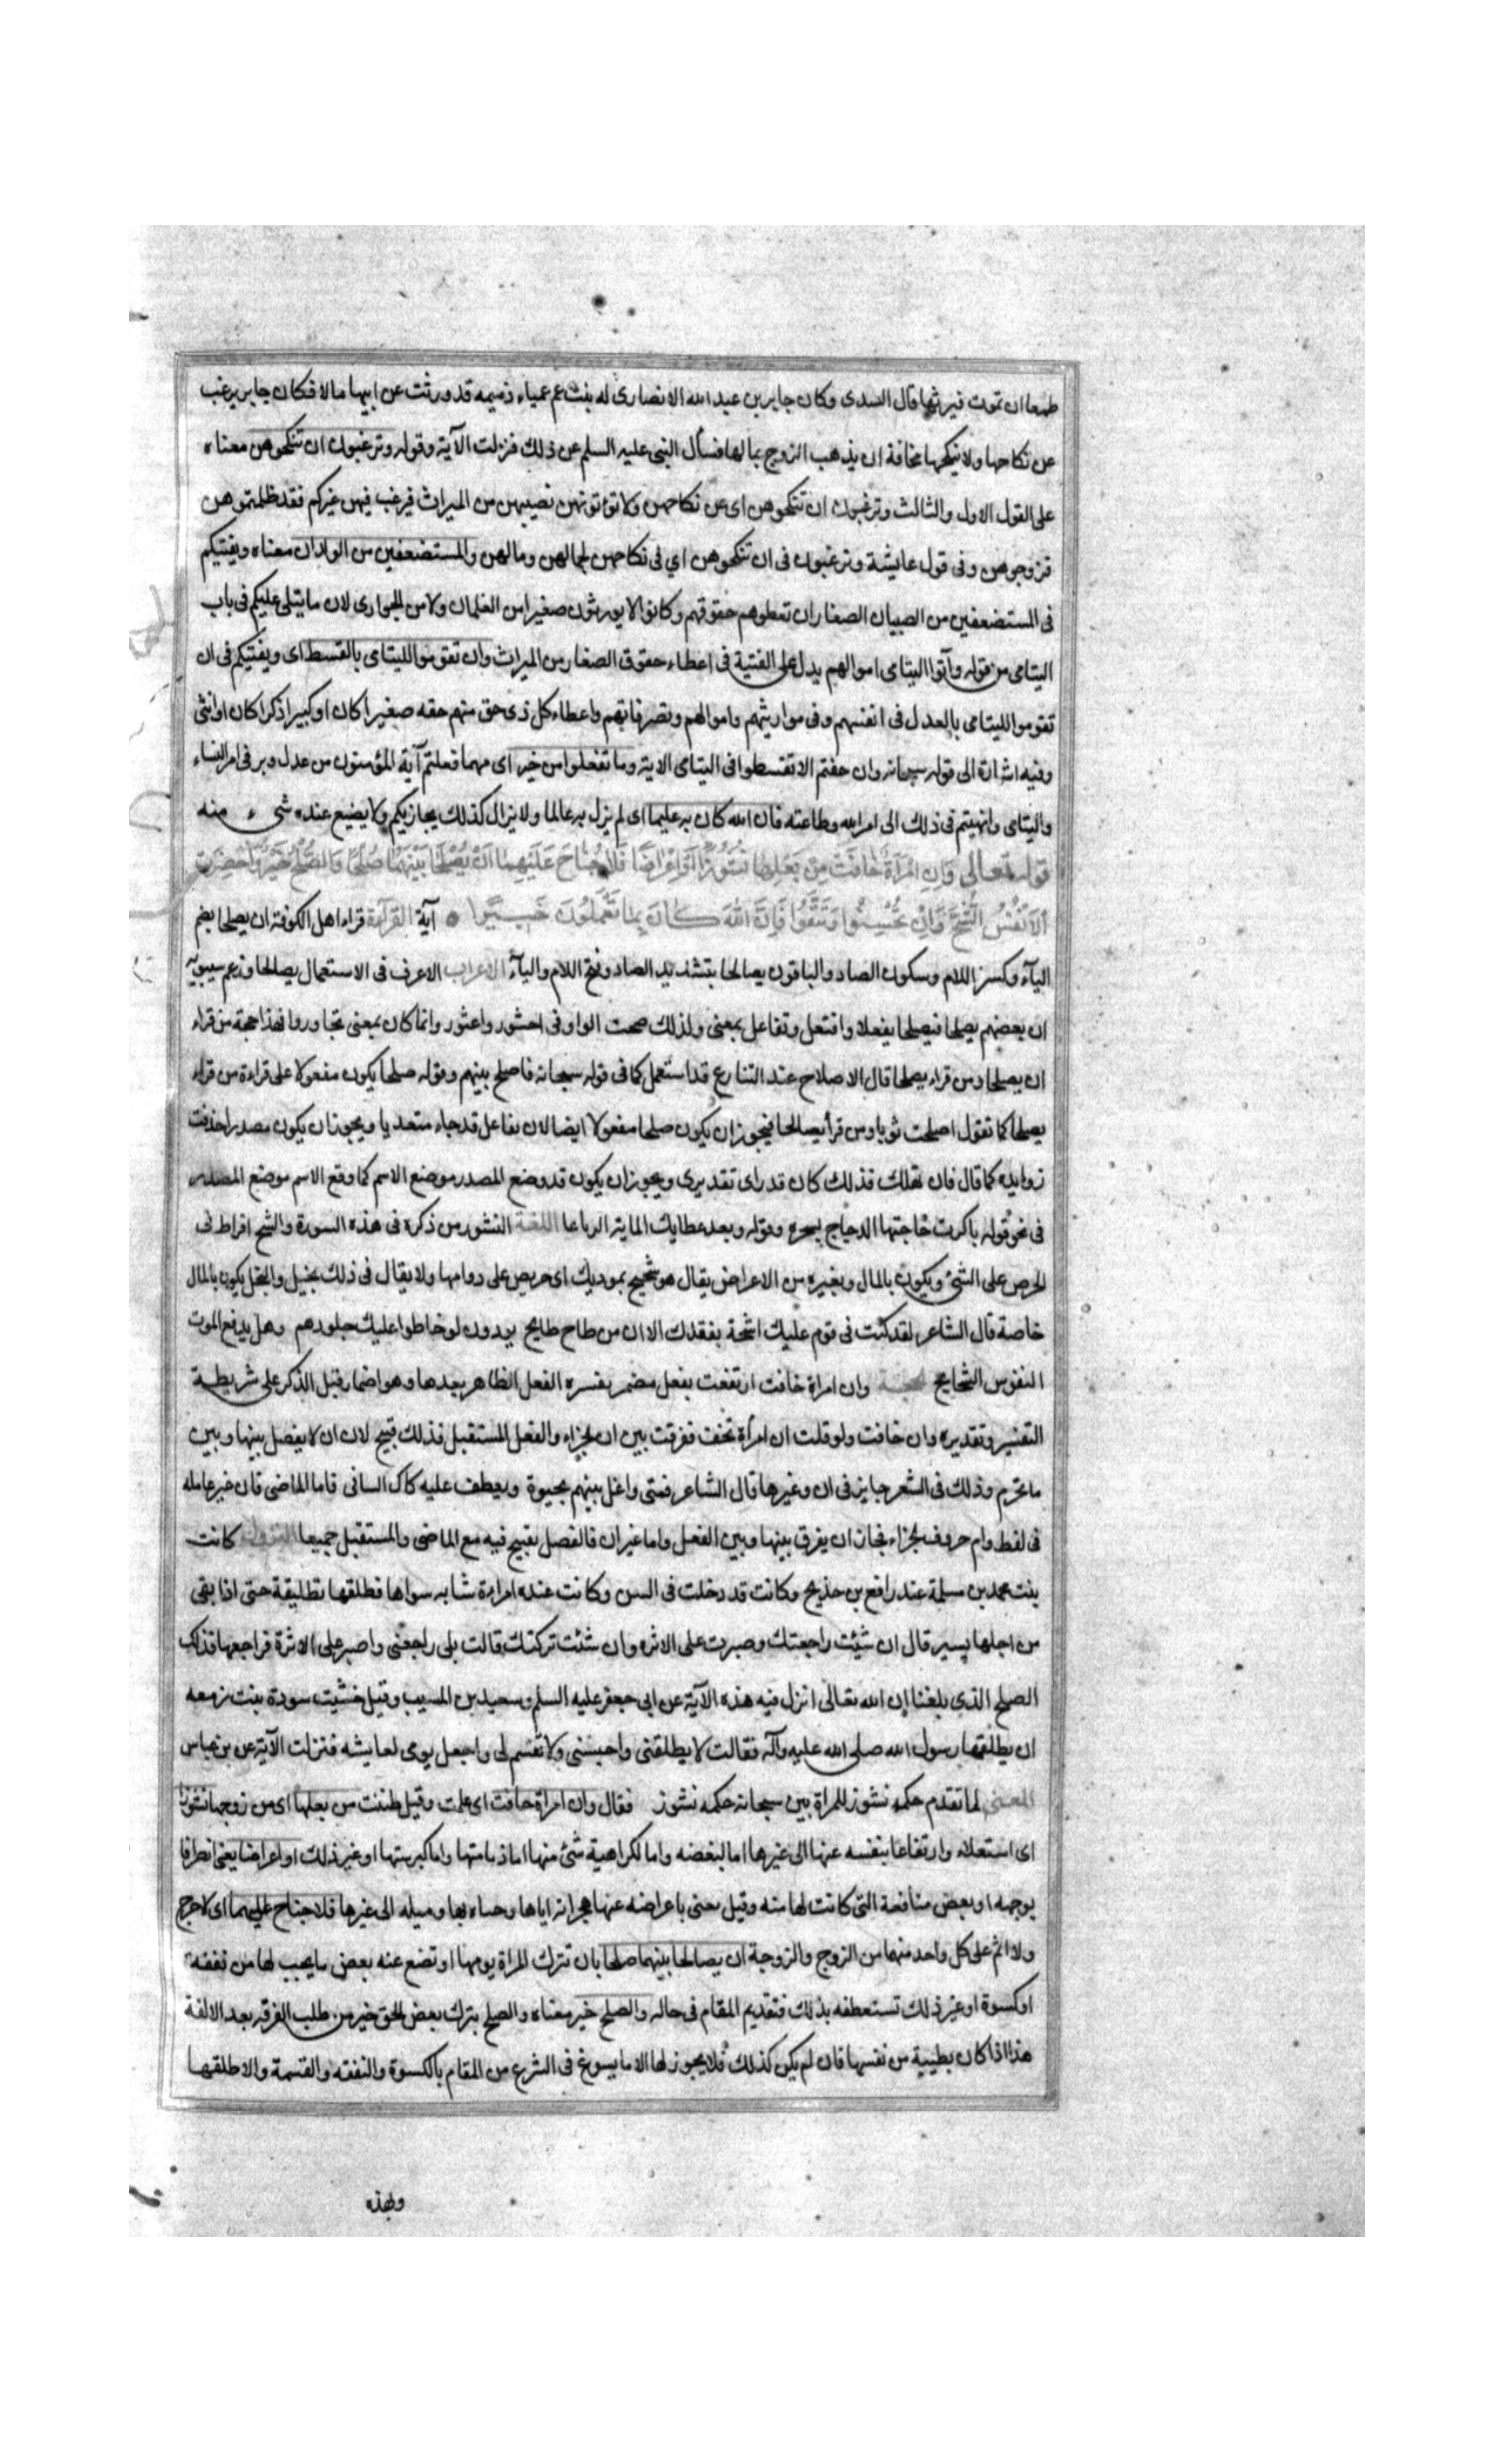 طمعا ان تموت فيرثها قال السدى وكان جابر بن عبد الله الانصارى له بنت عم عمياء ذميمه قد ورثت عن ابيها مالا فكان جابر يرغب
عن نكاحها ولا ينكحها مخافة ان يذهب الزوج بمالها فسأل النبى عليه السلم عن ذلك فنزلت الآية وقوله وترغبون ان تنكحوهن معناه
على القول الاول والثالث وترغبون ان تنكحوهن اى عن نكاحهن ولا تؤتونهن نصيبهن من الميراث فيرغب فيهن غيركم فقد ظلمتموهن
فزوجوهن وفى قول عايشة وترغبون فى ان تنكحوهن اي فى نكاحهن لجمالهن ومالهن والمستضعفين من الولدان معناه ويفتيكم
فى المستضعفين من الصبيان الصغار ان تعطوهم حقوقهم وكانوا لا يورثون صغيرا من الغلمان ولا من الجوارى لان ما يتلى عليكم فى باب
اليتامى من قوله وآتوا اليتامى اموالهم يدل على الفتية فى اعطاء حقوق الصغار من الميراث وان تقوموا لليتامى بالقسط اى ويفتيكم فى ان
تقوموا لليتامى بالعدل فى انفسهم وفى مواريثهم واموالهم وتصرفاتهم واعطاء كل ذى حق منهم حقه صغيرا كان او كبيرا ذكرا كان او انثى
وفيه اشارة الى قوله سبحانه وان خفتم الا تقسطوا فى اليتامى الاية وما تفعلوا من خير اى مهما فعلتم آية المؤمنون من عدل وبر فى امر النساء
واليتامى وانتهيتم فى ذلك الى امر الله وطاعته فان الله كان به عليما اى لم يزل به عالما ولا يزال كذلك يجازيكم ولا يضيع عنده شىء منه
قوله تعالى وَاِنِ امْرَأَةٌ خَافَتْ مِنْ بَعْلِهَا نُشُوزًا اَوْ اِعْرَاضًا فَلَا جُنَاحَ عَلَيْهِمَا اَنْ يُصْلِحَا بَيْنَهُمَا صُلْحًا وَالصُّلْحُ خَيْرٌ وَاُحْضِرَتِ
الْاَنْفُسُ الشُّحَّ وَاِنْ تُحْسِنُوا وَتَتَّقُوا فَاِنَّ اللهَ كَانَ بِمَا تَعْمَلُونَ خَبِيرًا آية القرآءة قراء اهل الكوفة ان يصلحا بضم
اليآء وكسر اللام وسكون الصاد والباقون يصالحا بتشديد الصاد وفتح اللام واليآء الاعراب الاعرف فى الاستعمال يصالحا وزعم سيبويه
ان بعضهم يصلحا فيصلحا يفعلا وافتعل وتفاعل بمعنى ولذلك صحت الواو فى احتشور واعثور وانما كان بمعنى تجاوروا فهذا حجة من قراء
ان يصلحا ومن قراء يصلحا قال الاصلاح عند التنارع قد استعمل كما فى قوله سبحانه فاصلح بينهم وقوله صلحا يكون مفعولا على قراءة من قراء
يصلحا كما تقول اصلحت ثوبا ومن قرأ يصالحا فيجوز ان يكون صلحا مفعولا ايضا لان تفاعل قد جاء متعديا ويجوز ان يكون مصدرا حذفت
زوايده كما قال فان تهلك فذلك كان قدرى اى تقديرى ويجوز ان يكون قد وضع المصدر موضع الاسم كما وقع الاسم موضع المصدر
فى نحو قوله باكرت حاجتها الدجاج بسحره وقوله وبعد عطايك الماية الرباعا اللغة النشور من ذكره فى هذه السورة والشح افراط فى
الحرص على الشئ ويكون بالمال وبغيره من الاعراض يقال هو شحيح بموديك اى حريص على دوامها ولا يقال فى ذلك بخيل والبخل يكون بالمال
خاصة قال الشاعر لقد كنت فى قوم عليك اشحة بفقدك الا ان من طاح طايح يودون لو خاطوا عليك جلودهم وهل يدفع الموت
النفوس الشحايح وان امراة خافت ارتفعت بفعل مضمر يفسره الفعل الظاهر بعدها وهو اضمار قبل الذكر على شريطة
التفسير وتقديره وان خافت ولو قلت ان امرأة تخف ففرقت بين ان الجزاء والفعل المستقبل فذلك قبيح لان ان لا يفصل بينها وبين
ما تجزم وذلك فى الشعر جايز فى ان وغيرها قال الشاعر فمتى واغل بينهم يحيوة ويعطف عليه كاك السانى فاما الماضى فان غير عامله
فى لفظ وام حروف الجزاء فجاز ان يفرق بينها وبين الفعل واما غير ان فالفصل يقبح فيه مع الماضى والمستقبل جميعا النزول كانت
بنت محمد بن مسلمة عند رافع بن خذيج وكانت قد دخلت فى السن وكانت عنده امراءة شابه سواها فطلقها تطليقة حتى اذا بقى
من اجلها يسير قال ان شيئت راجعتك وصبرت على الاثره وان شئت تركتك قالت بلى راجعنى واصبر على الاثرة فراجعها فذلك
الصلح الذى بلغنا ان الله تعالى انزل فيه هذه الآية عن ابى جعفر عليه السلم وسعيد بن المسيب وقيل خشيت سودة بنت زمعه
ان يطلقها رسول الله صلى الله عليه وآله فقالت لا يطلقنى واحبسنى ولا تقسم لى واجعل يومى لعايشه فنزلت الآية عن بن عباس
المعنى لما تقدم حكمه نشوز للمراة بين سبحانه حكمه نشوز فقال وان امراة خافت اى علمت وقيل ظننت من بعلها اى من زوجها نشوزا
اى استعلاء وارتفاعا بنفسه عنها الى غيرها اما لبغضه واما لكراهية شئ منها اما ذمامتها واما كبر سنها او غير ذلك او اعراضا يعنى انصرافا
بوجهه او بعض منافعه التى كانت لها منه وقيل يعنى باعراضه عنها هجرانه اياها وميله الى غيرها فلا جناح عليهما اى لا حرج
ولا اثم على كل واحد منهما من الزوج والزوجة ان يصالحا بينهما صلحا بان تترك المراة يومها او تضع عنه بعض ما يجب لها من نفقه
او كسوة او غير ذلك تستعطفه بذلك فتقديم المقام فى حاله والصلح خير معناه والصلح بترك بعض الحق خير من طلب الفرقه بعد الالفة
هذا اذا كان بطيبة من نفسها فان لم يكن كذلك فلا يجوز لها الا ما يسوغ فى الشرع من المقام بالكسوة والنفقه والقسمة والا طلقها
ولهذه